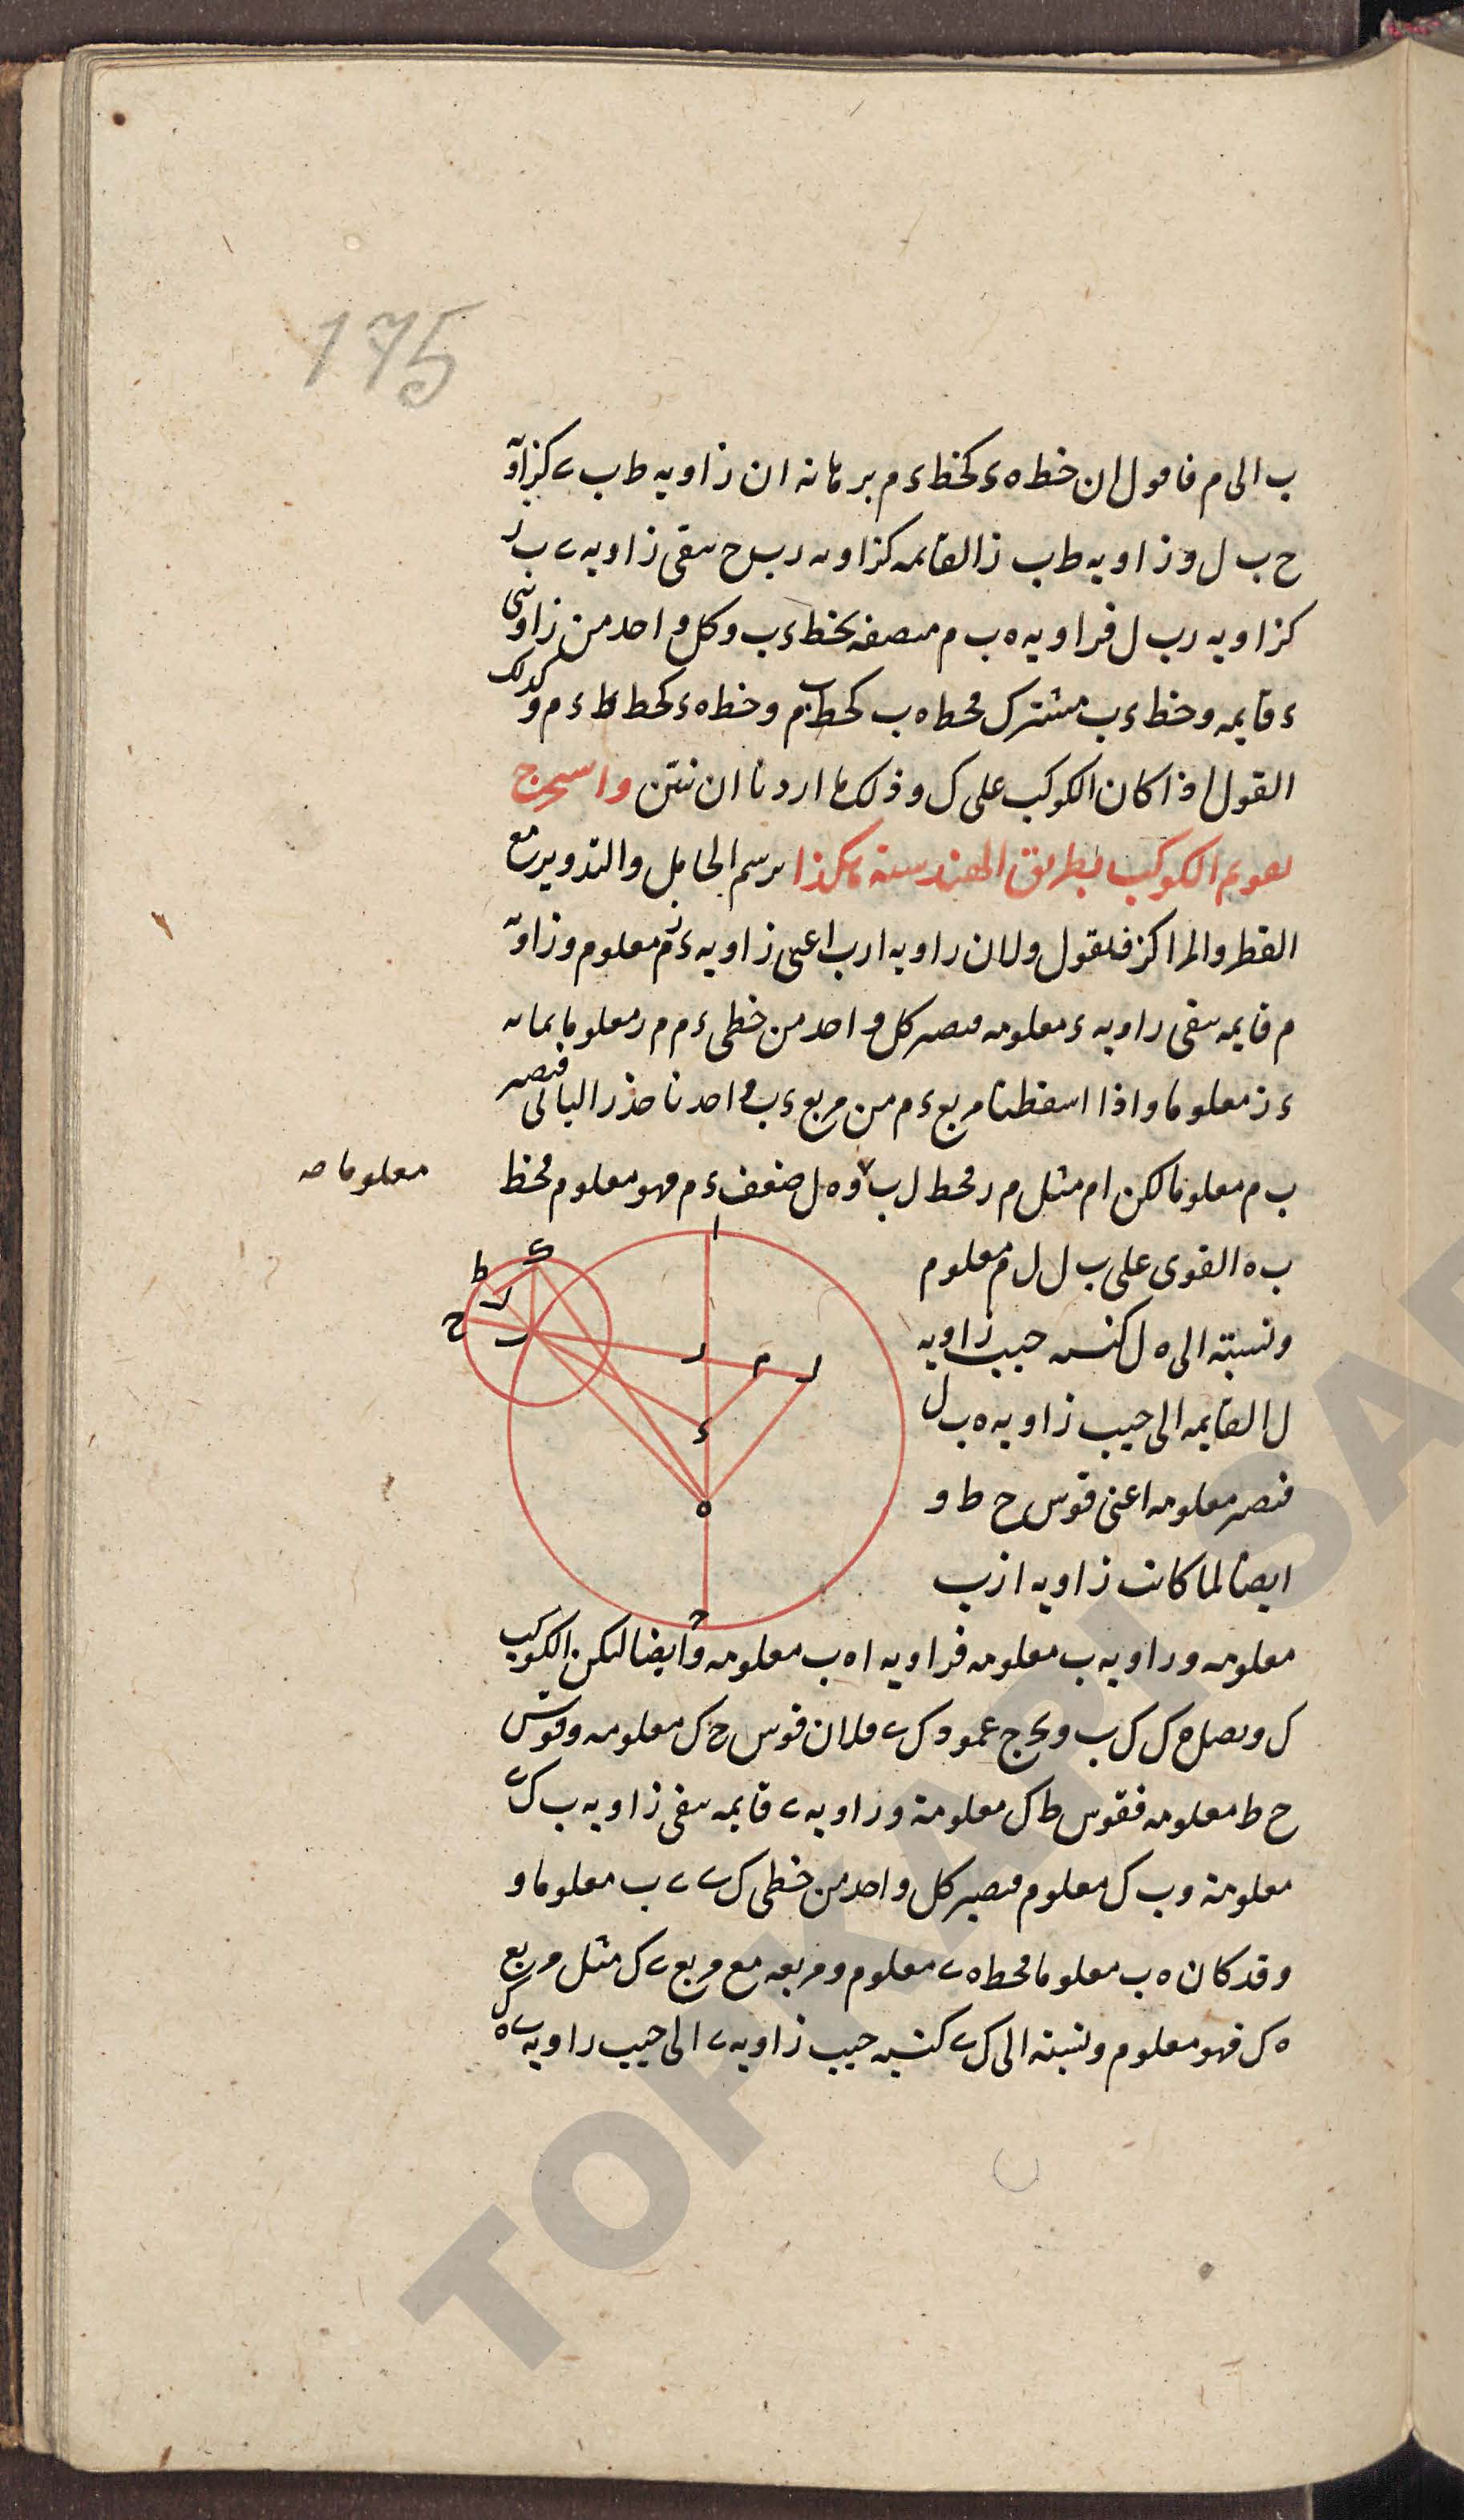 175
ب الى م فاقول ان خط ه ى كخط ء م برهانه ان زاويه ط ب ى كزاوية
ح ب ل و زاويه ط ب ز القايمه كزاويه ر ب ح سقى زاويه ى ب ر
كزاويه ر ب ل فزاويه ه ب م منصفه بخط ء ب وكل واحد من زاويتى
ء قايمه وخط ء ب مشترك فخط ه ب كخط ب م وخط ه ء كخط ء م وكذلك
القول اذا كان الكوكب على ك وذلك ما اردنا ان نبين واستخرج
تقويم الكوكب بطريق الهندسة هكذا نرسم الحامل والتدوير مع
القطر والمراكز فلنقول ولان زاويه ا ر ب اعنى زاويه ء ز م معلوم وزاوية
م قايمه سقى زاويه ء معلومه فيصير كل واحد من خطى ء م م ر معلوما بمانه
ء ز معلوما واذا اسقطنا مربع ء م من مربع ء ب واحدنا جذر الباقى فيصير
ب م معلوما لكن ام مثل م ر فخط ل ب و ه ل ضعف ء م فهو معلوم فخط
معلوما صه
ب ه القوى على ب ل ل م معلوم
ونسبته الى ه ل كنسبه جيب زاويه
ل القايمه الى جيب زاويه ه ب ل
فتصير معلومه اعنى قوس ح ط و
ايضا لما كانت زاويه ا ز ب
معلومه وزاويه ب معلومه فزاويه ا ه ب معلومه وايضا ليكن الكوكب
ك ونصل ه ك ك ب ونخرج عمود ك ى فلان قوس ح ك معلومه وقوس
ح ط معلومه فقوس ط ك معلومة وزاويه ى قايمه سقى زاويه ب ك ى
معلومة و ب ك معلوم فيصير كل واحد من خطى ك ى ى ب معلوما و
وقد كان ه ب معلوما فخط ه ى معلوم ومربعه مع مربع ى ك مثل مربع
ه ك فهو معلوم ونسبته الى ك ى كنسبه جيب زاويه ى الى جيب زاويه ى ه ك
ا
ى
ط
ل
ح
ب
ر
م
ل
ء
ه
ح
TOPKAPI SA